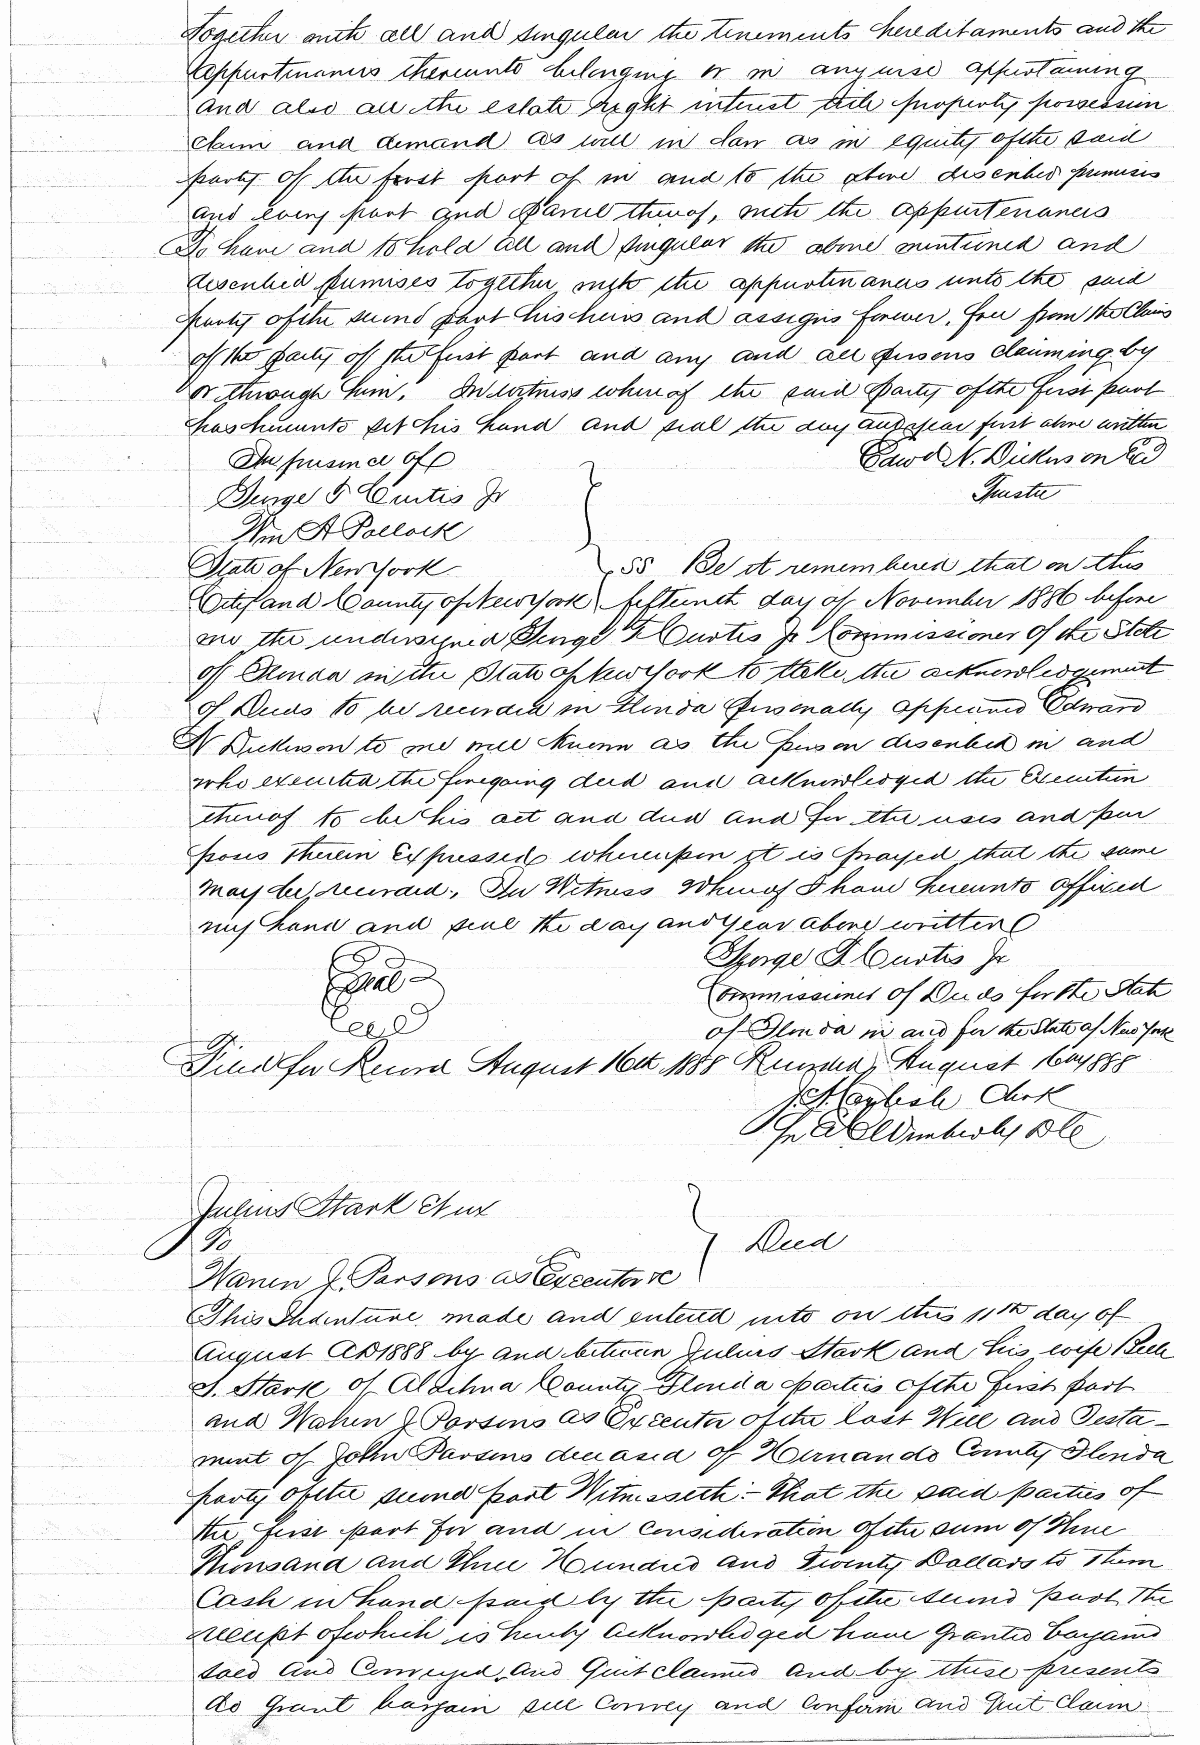 Together with all and singular the tenements hereditaments and the
appurtenances thereunto belonging or in anywise appertaining
and also all the estate right interest title property possession
claim and demand as well in law as in equity of the said
party of the first part of in and to the above described premises
and every part and parcel thereof, with the appurtenances
To have and to hold all and singular the above mentioned and
described premises together with the appurtenances unto the said
party of the second part his heirs and assigns forever. free from the Claims
of the party of the first part and any and all persons claiming by
or through him. In witness whereof the said party of the first part
has hereunto set his hand and seal the day and year first above written
In presence of Edwd N. Dickerson
George F Curtis Jr Trustee
Wm A Pollock
State of New York ss Be it remembered that on this
City and County of New York fifteenth day of November 1886 before
me the undersigned George F Curtis Jr Commissioner of the State
of Florida in the State of New York to take the acknowledgement
of Deeds to be recorded in Florida personally appeared Edward
N Dickerson to me well known as the person described in and
who executed the foregoing deed and acknowledged the Execution
thereof to be his act and deed and for the uses and pur
poses therein Expressed whereupon it is prayed that the same
may be recorded. In Witness Whereof I have hereunto affixed
my hand and seal the day and year above written
Seal George F. Curtis Jr
Commissioner of Deeds for the State
of Florida in and for the State of New York
Filed for Record August 16th 1888 Recorded August 1888
Clerk
Wimberly DC
Julius Stark et ux
To Deed
Warren J. Parsons as Executor &c
This Indenture made and entered into on this 11th day of
August AD 1888 by and between Julius Stark and his wife
S. Stark of Alachua County Florida parties of the first part
and Warren J Parsons as Executor of the last Will and Testa-
ment of John Parsons deceased of Hernando County Florida
party of the second part Witnesseth:- That the said parties of
the first part for and in consideration of the sum of Three
Thousand and Three Hundred and Twenty Dollars to Them
Cash in hand paid by the party of the second part The
receipt of which is hereby acknowledged have Granted bargained
sold and Conveyed and Quitclaimed and by these presents
do grant bargain sell Convey and Confirm and Quit Claim